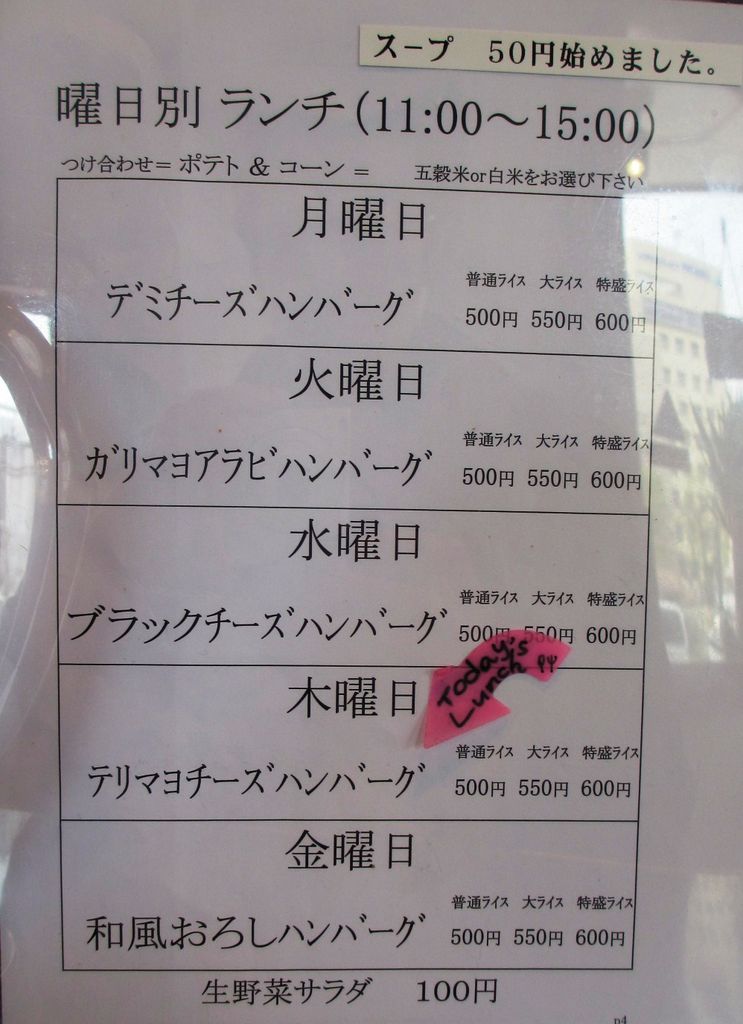 スープ　50円始めました。
曜日別 ランチ(11:00～15:00)
つけ合わせ＝ ポテト & コーン ＝　五穀米or白米をお選び下さい
月曜日
デミチーズハンバーグ
普通ライス 大ライス 特盛ライス
500円 550円 600円
火曜日
ガリマヨアラビハンバーグ
普通ライス 大ライス 特盛ライス
500円 550円 600円
水曜日
ブラックチーズハンバーグ
普通ライス 大ライス 特盛ライス
500円 550円 600円
Today's
Lunch
木曜日
テリマヨチーズハンバーグ
普通ライス 大ライス 特盛ライス
500円 550円 600円
金曜日
和風おろしハンバーグ
普通ライス 大ライス 特盛ライス
500円 550円 600円
生野菜サラダ　100円
p4